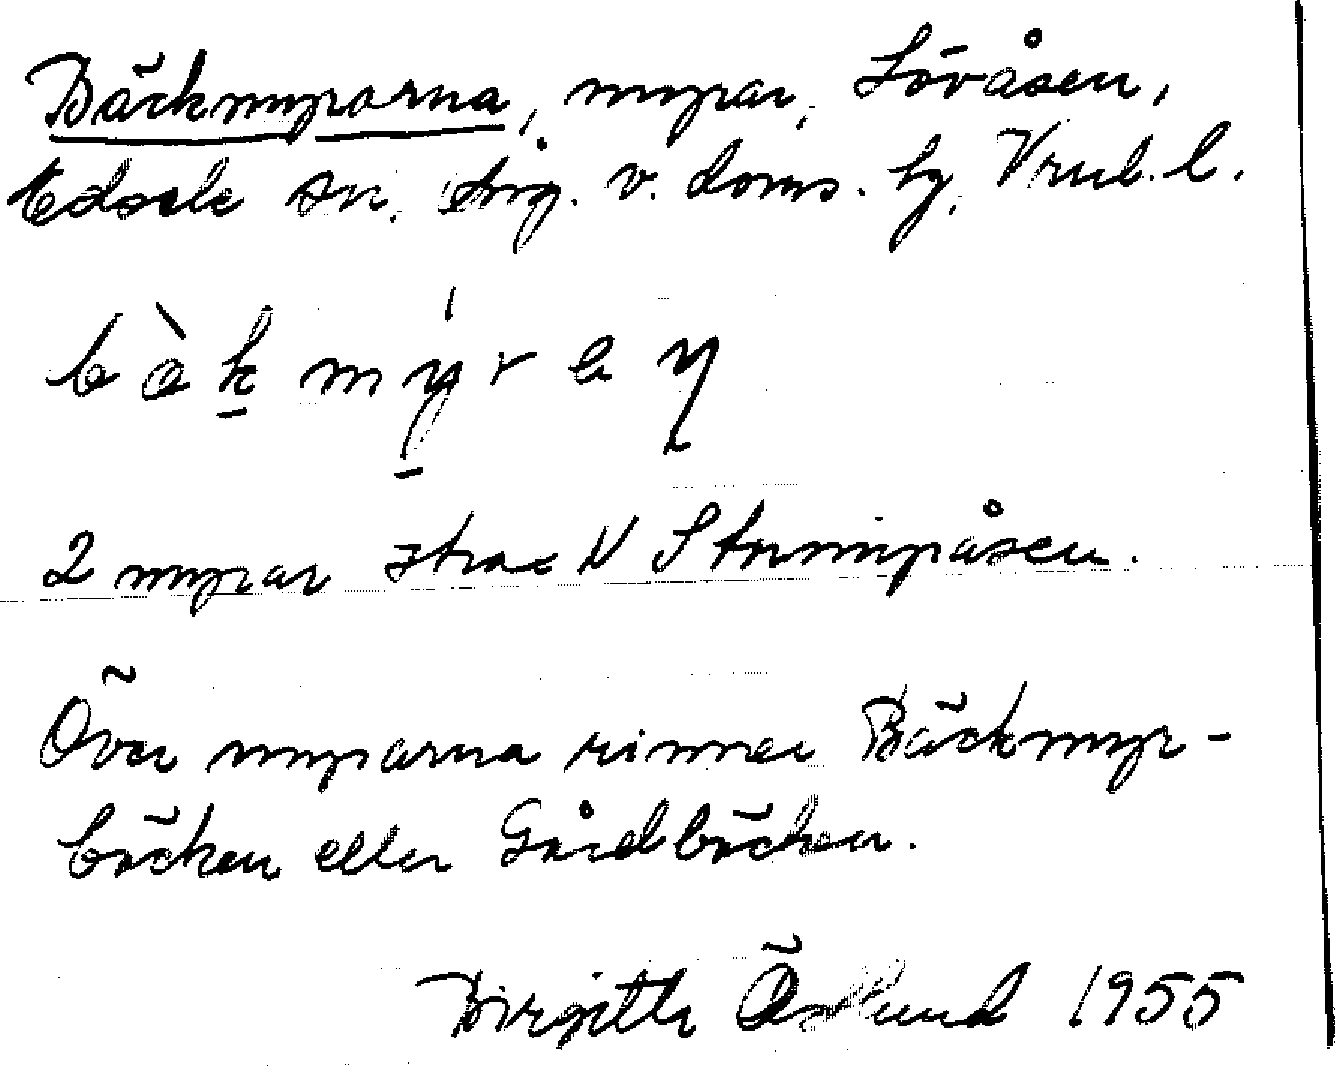 Bäckmyrarna, myrar, Lövåsen,
Edsele sn. Ång. v. doms. hg, Vnrl. l.
bàkmýraŋ
2 myrar strax N Stormyråsen.
Över myrarna rinner Bäckmyr-
bäcken eller Gårdbäcken.
Birgitta Östlund 1955